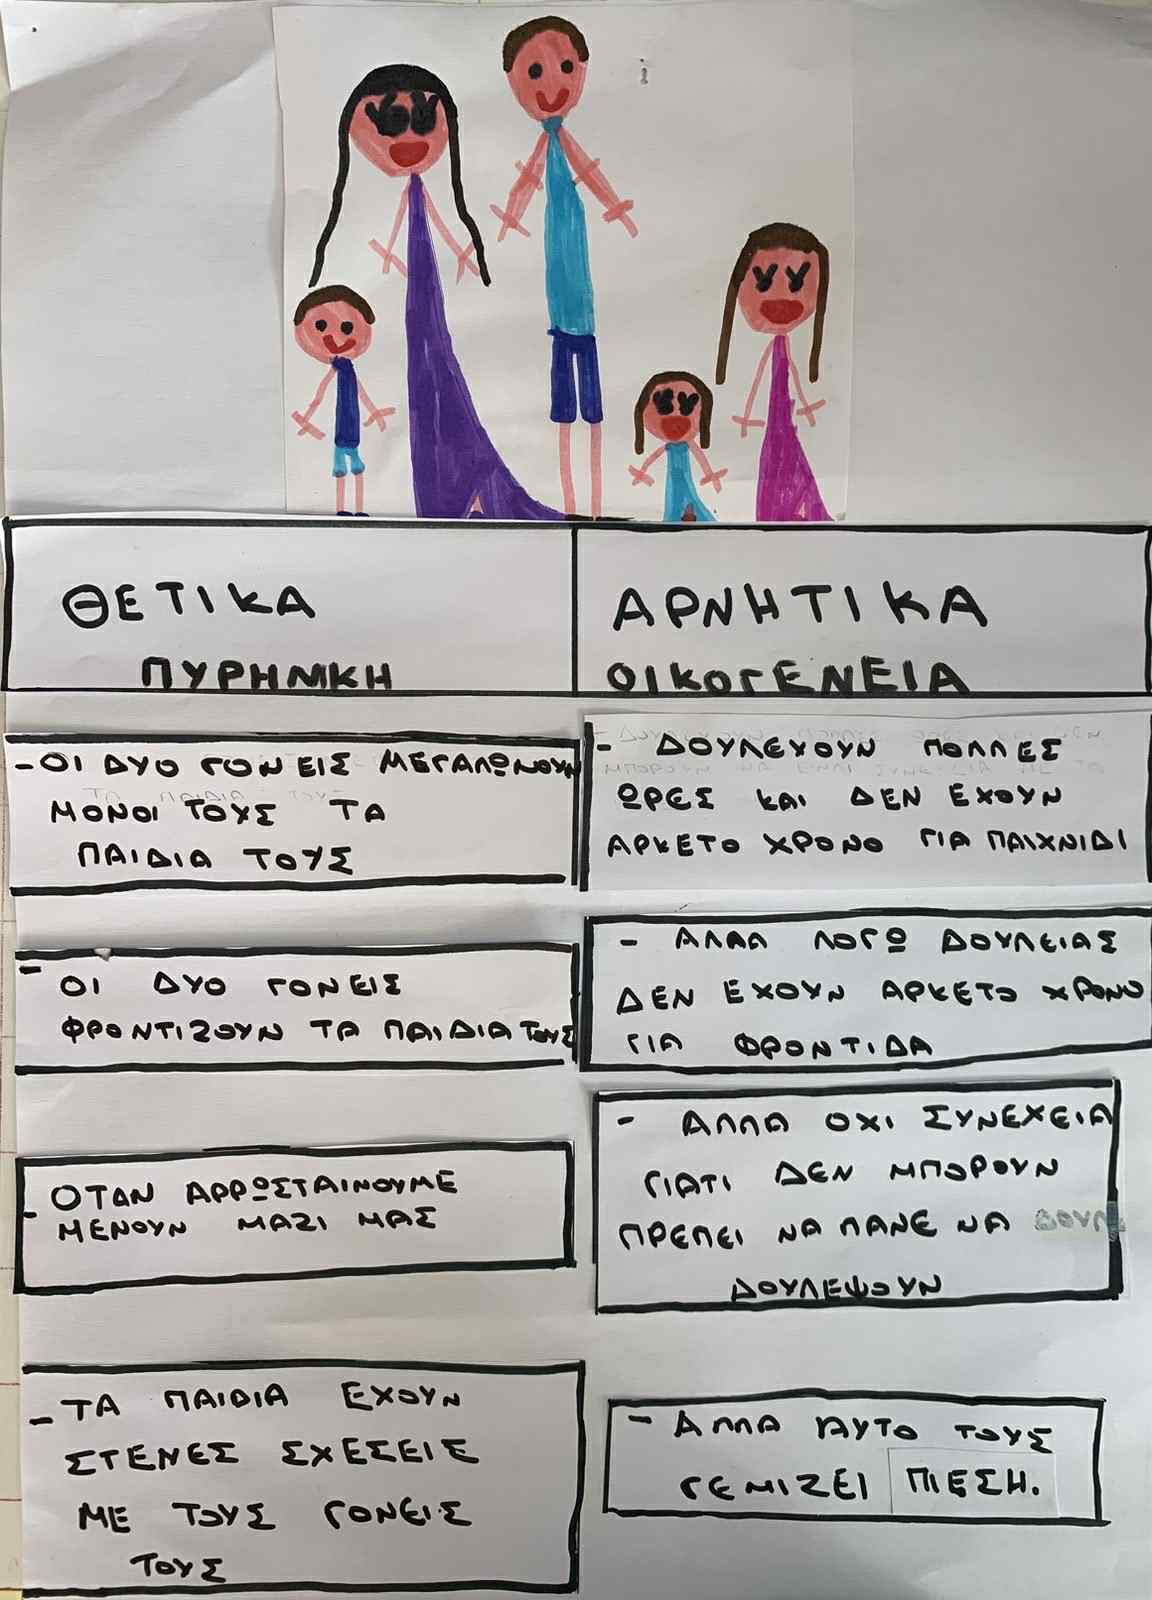 ΘΕΤΙΚΑ
ΑΡΝΗΤΙΚΑ
ΠΥΡΗΜΚΗ
ΟΙΚΟΓΕΝΕΙΑ
- ΟΙ ΔΥΟ ΓΟΝΕΙΣ ΜΕΓΑΛΩΝΟΥΝ
ΜΟΝΟΙ ΤΟΥΣ ΤΑ
ΠΑΙΔΙΑ ΤΟΥΣ
- ΔΟΥΛΕΥΟΥΝ ΠΟΛΛΕΣ
ΩΡΕΣ ΚΑΙ ΔΕΝ ΕΧΟΥΝ
ΑΡΚΕΤΟ ΧΡΟΝΟ ΓΙΑ ΠΑΙΧΝΙΔΙ
- ΟΙ ΔΥΟ ΓΟΝΕΙΣ
ΦΡΟΝΤΙΖΟΥΝ ΤΑ ΠΑΙΔΙΑ ΤΟΥΣ
- ΑΛΛΑ ΛΟΓΩ ΔΟΥΛΕΙΑΣ
ΔΕΝ ΕΧΟΥΝ ΑΡΚΕΤΟ ΧΡΟΝΟ
ΓΙΑ ΦΡΟΝΤΙΔΑ
- ΟΤΑΝ ΑΡΡΩΣΤΑΙΝΟΥΜΕ
ΜΕΝΟΥΝ ΜΑΖΙ ΜΑΣ
- ΑΛΛΑ ΟΧΙ ΣΥΝΕΧΕΙΑ
ΓΙΑΤΙ ΔΕΝ ΜΠΟΡΟΥΝ
ΠΡΕΠΕΙ ΝΑ ΠΑΝΕ ΝΑ
ΔΟΥΛΕΨΟΥΝ
- ΤΑ ΠΑΙΔΙΑ ΕΧΟΥΝ
ΣΤΕΝΕΣ ΣΧΕΣΕΙΣ
ΜΕ ΤΟΥΣ ΓΟΝΕΙΣ
ΤΟΥΣ
- ΑΛΛΑ ΑΥΤΟ ΤΟΥΣ
ΓΕΜΙΖΕΙ ΠΙΕΣΗ.